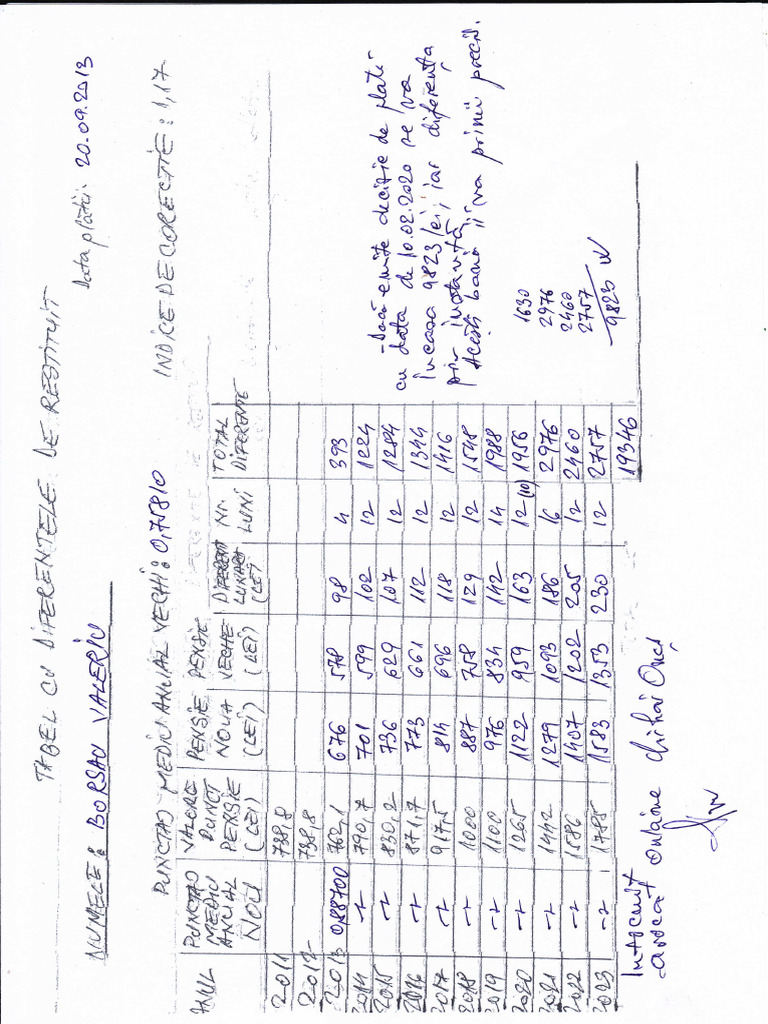 TABEL CU DIFERENTELE DE RESTITUIT
NUMELE: BORSAN VALERIU
Data plății: 20.09.2013
PUNCTAJ MEDIU ANUAL VECHI: 0,75810
INDICE DE CORECTIE: 1,17
ANUL | PUNCTAJ MEDIU ANUAL NOU | VALORE PUNCT PENSIE (LEI) | PENSIE NOUA (LEI) | PENSIE VECHE (LEI) | LUNARA (LEI) | NR. LUNI | TOTAL DIFERENTE
2011 | 738,8
2012 | 738,8
2013 | 0,88700 | 762,1 | 676 | 578 | 98 | 4 | 393
2014 | -"- | 790,7 | 701 | 599 | 102 | 12 | 1224
2015 | -"- | 830,2 | 736 | 629 | 107 | 12 | 1284
2016 | -"- | 871,7 | 773 | 661 | 112 | 12 | 1344
2017 | -"- | 917,5 | 814 | 696 | 118 | 12 | 1416
2018 | -"- | 1000 | 887 | 758 | 129 | 12 | 1548
2019 | -"- | 1100 | 976 | 834 | 142 | 14 | 1988
2020 | -"- | 1265 | 1122 | 959 | 163 | 12 (10) | 1956
2021 | -"- | 1442 | 1279 | 1093 | 186 | 16 | 2976
2022 | -"- | 1586 | 1407 | 1202 | 205 | 12 | 2460
2023 | -"- | 1785 | 1583 | 1353 | 230 | 12 | 2757
19346
- Dacă emite decizie de plată
cu data de 10.02.2020 se va
încasa 9823 lei; iar diferența
prin instanță
Acești bani îi va primii precis.
1630
2976
2460
2757
9823
Intocmit
avocat